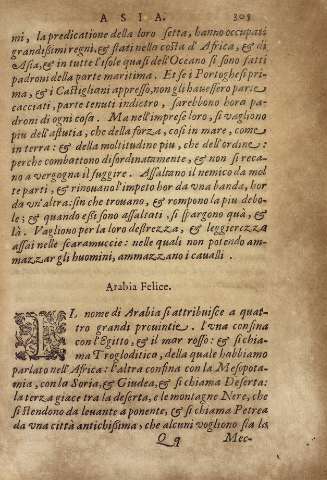 ASIA. 305
mi, la predicatione della loro setta, hanno occupati
grandissimi regni, & stati nella costa d'Africa, & di
Asia, & in tutte l'isole quasi dell'Oceano si sono fatti
padroni della parte maritima. Et se i Portoghesi pri-
ma, & i Castigliani appresso, non gli hauessero parte
cacciati, parte tenuti indietro, sarebbono hora pa-
droni di ogni cosa. Ma nell'imprese loro, si vagliono
piu dell'astutia, che della forza, cosi in mare, come
in terra: & della moltitudine piu, che dell'ordine:
perche combattono disordinatamente, & non si reca-
no a vergogna il fuggire. Assaltano il nemico da mol
te parti, & rinouano l'impeto hor da vna banda, hor
da vn'altra: sin che trouano, & rompono la piu debo-
le; & quando essi sono assaltati, si spargono quà, &
là. Vagliono per la loro destrezza, & leggierezza
assai nelle scaramuccie: nelle quali non potendo am-
mazzar gli huomini, ammazzano i caualli.
Arabia Felice.
IL nome di Arabia si attribuisce a quat-
tro grandi prouintie. l'vna confina
con l'Egitto, & il mar rosso: & si chia-
ma Trogloditica, della quale habbiamo
parlato nell'Africa: l'altra confina con la Mesopota-
mia, con la Soria, & Giudea, & si chiama Deserta:
la terza giace tra la deserta, e le montagne Nere, che
si stendono da leuante a ponente, & si chiama Petrea
da vna città antichissima, che alcuni vogliono sia la
Qq Mec-